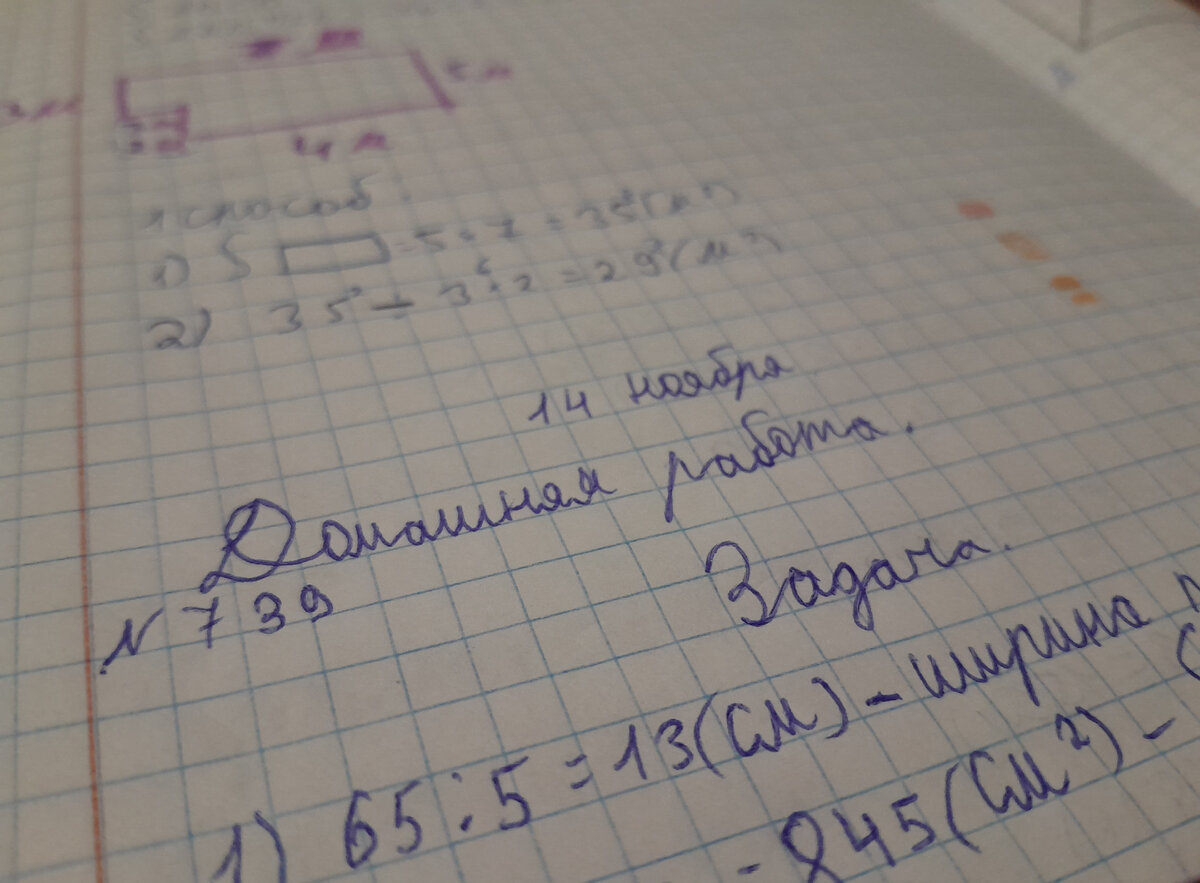 4 м
1 способ.
1) S = 5 · 7 = 35 (м²)
2) 35 - 3 · 2 = 29 (м²)
14 ноября
Домашняя работа.
Задача.
N 739
1) 65 : 5 = 13 (см) - ширина
845 (см²) -